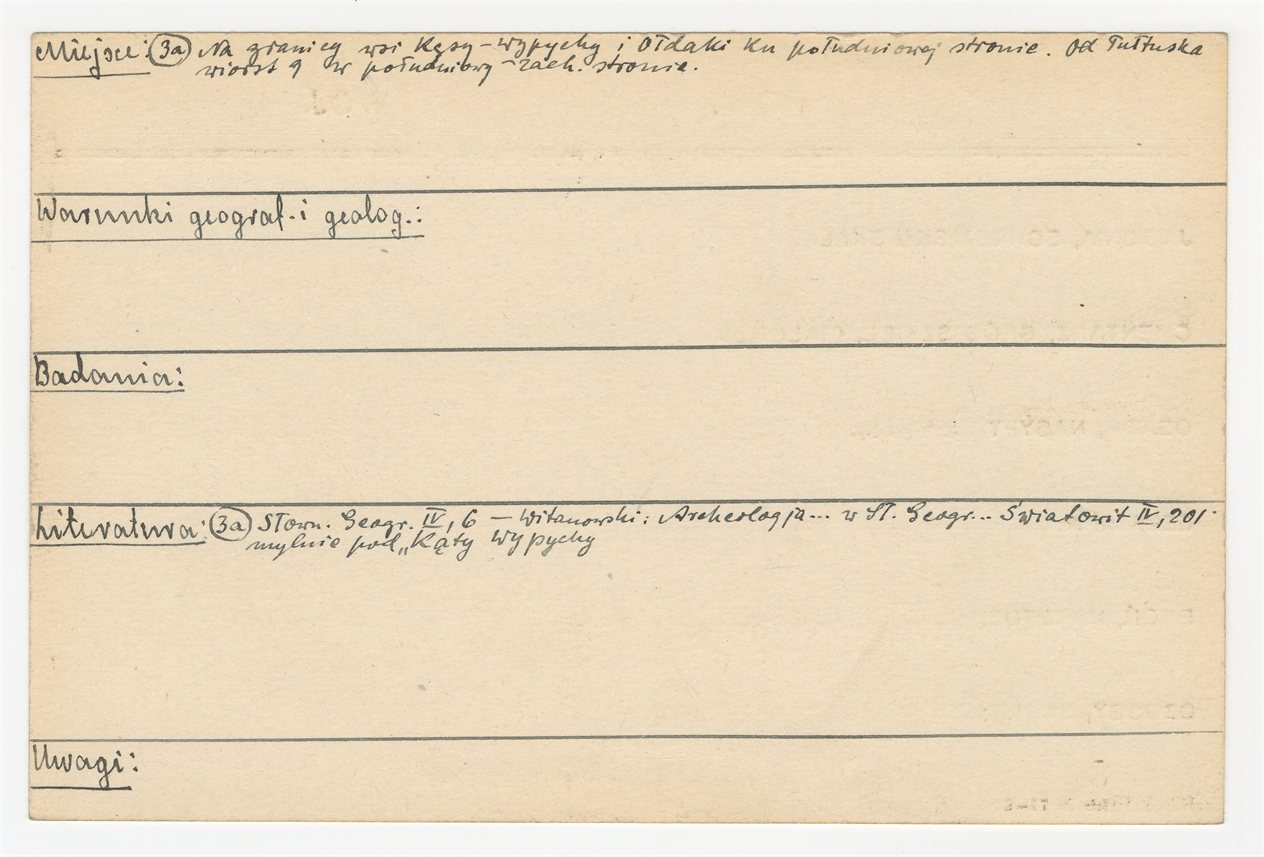 Miejsce: (3a) Na granicy wsi Kęsy-Wypychy i Ołdaki ku południowej stronie. Od Pułtuska
wiorst 9 w południowy-zach. stronie.
Warunki geograf. i geolog.:
Badania:
Literatura: (3a) Słown. Geogr. IV, 6 — Witanowski: Archeologja... w Sł. Geogr... Światowit IV, 201.
mylnie pod „Kąty Wypychy
Uwagi: